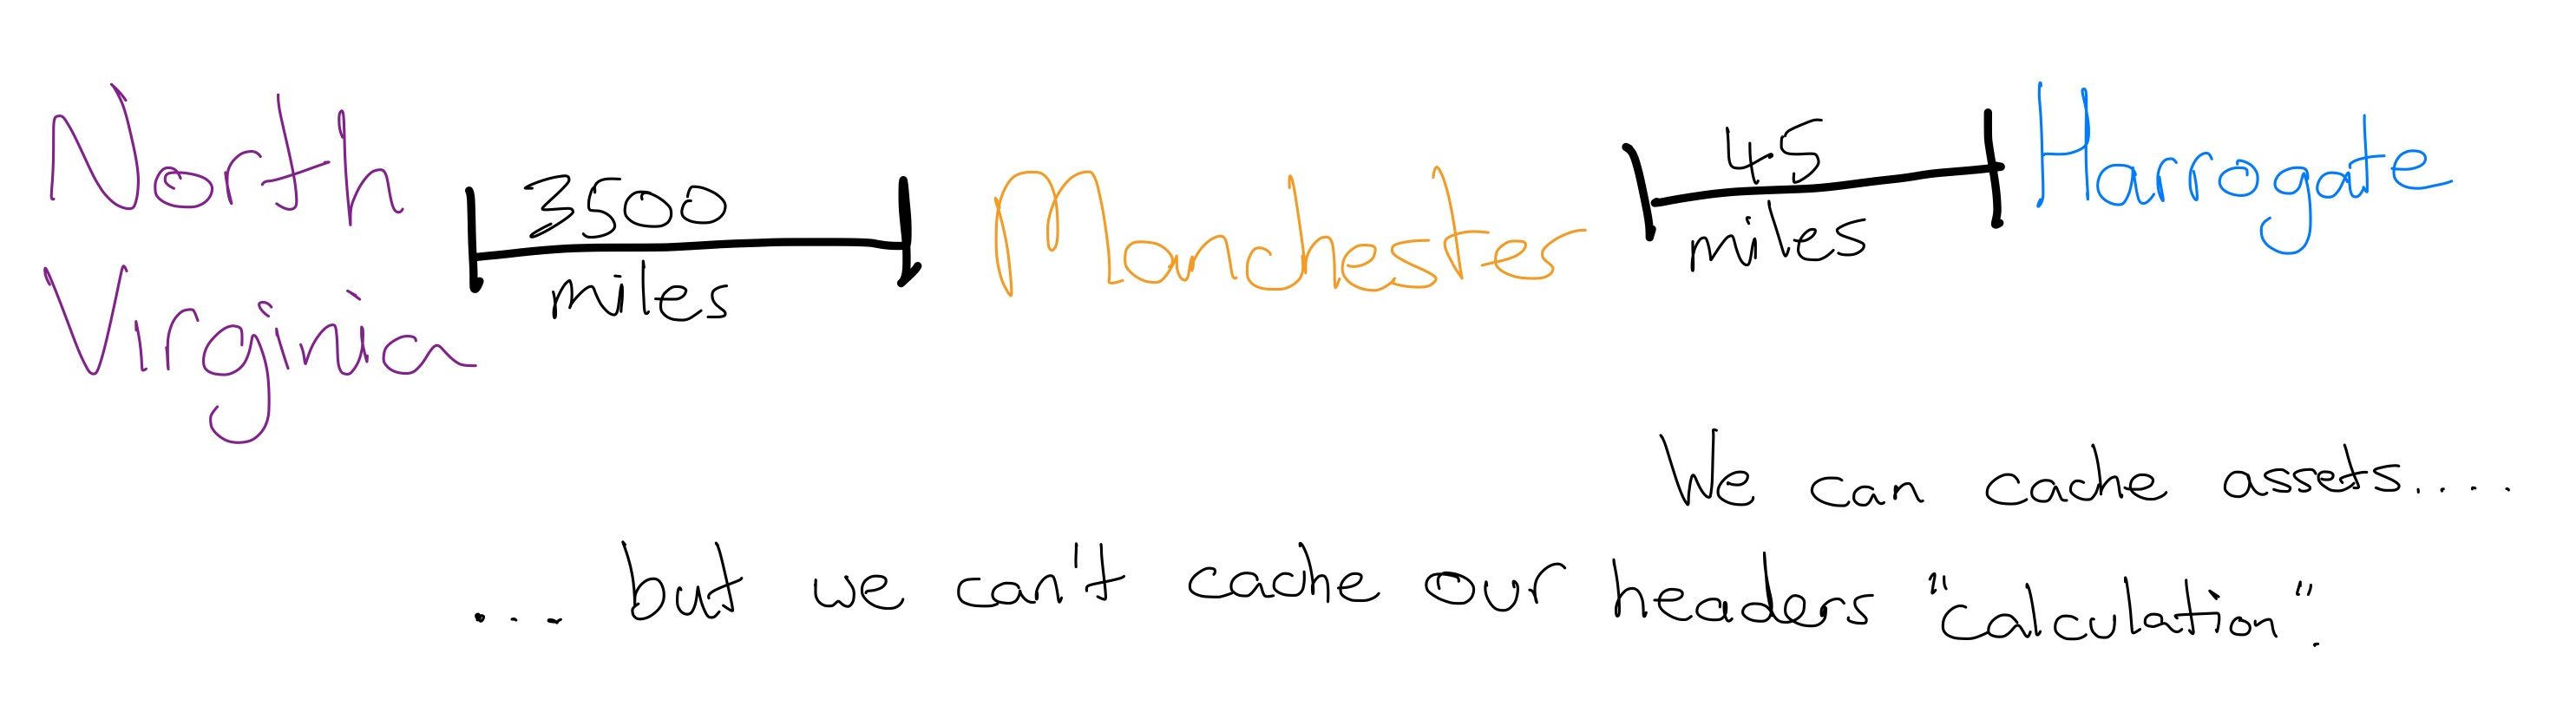 North
Virginia
3500
miles
Manchester
45
miles
Harrogate
We can cache assets....
.... but we can't cache our headers "calculation".